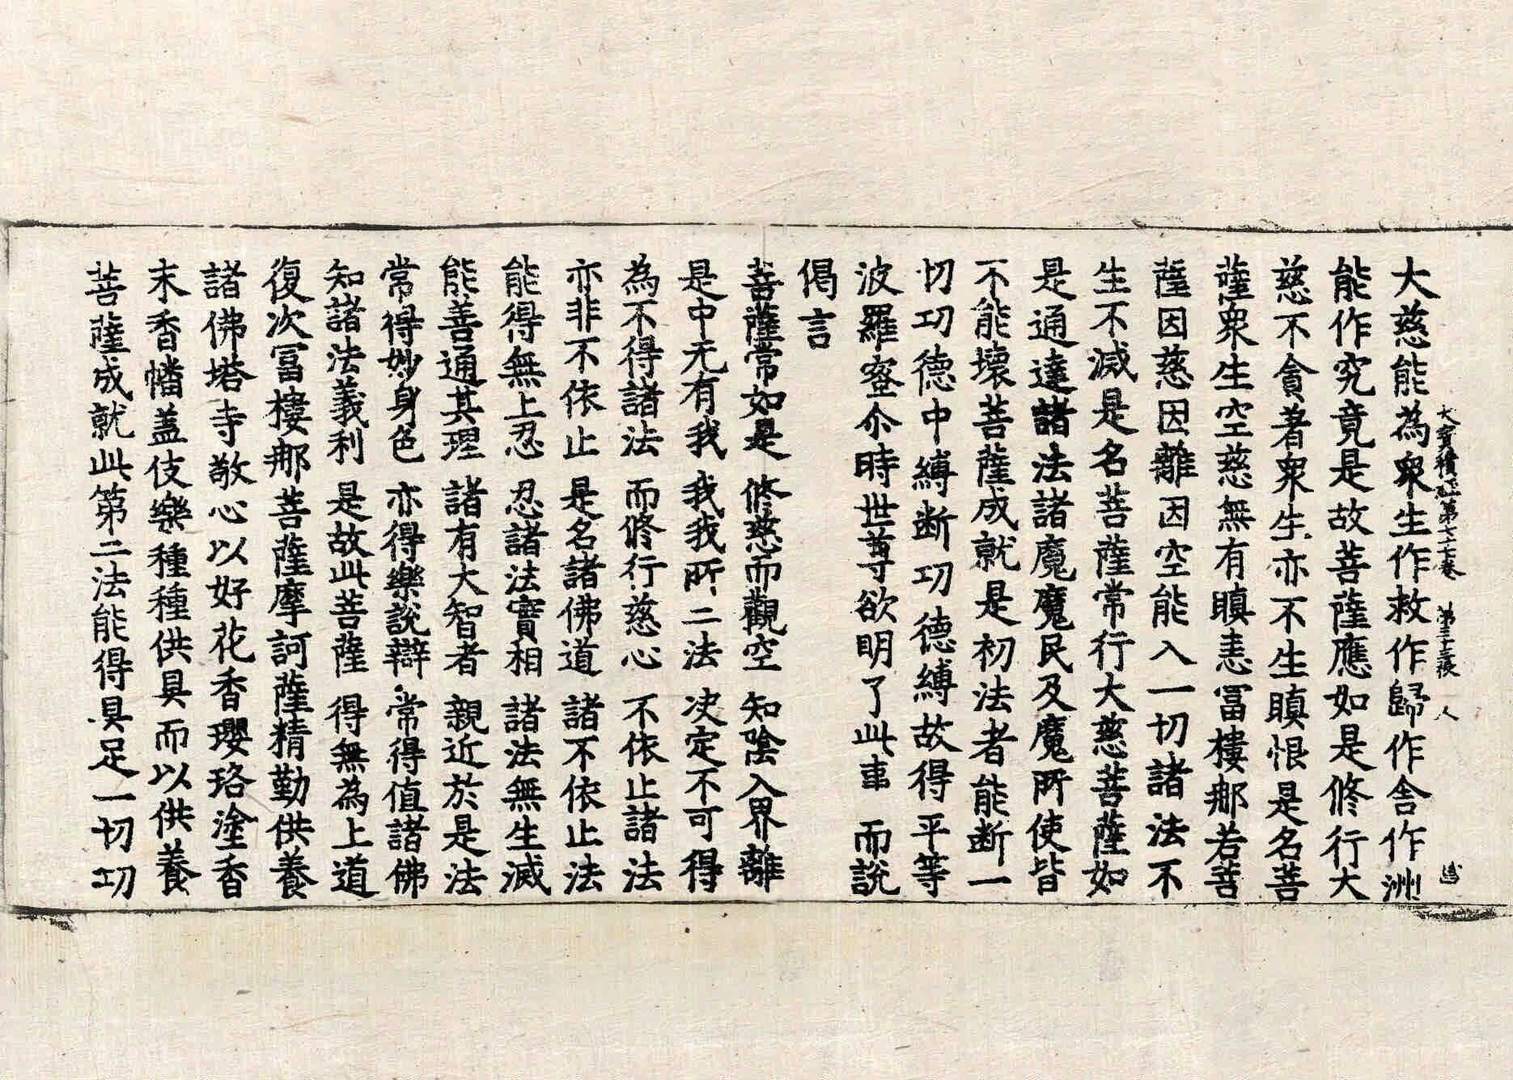 大慈能為衆生作救作歸作舎作洲
大寳積經第七十七卷　第三十二張　人
能作究竟是故菩薩應如是修行大
慈不貪著衆生亦不生瞋恨是名菩
薩衆生空慈無有瞋恚冨樓那若菩
薩因慈因離因空能入一切諸法不
生不減是名菩薩常行大慈菩薩如
是通達諸法諸魔魔民及魔所使皆
不能壞菩薩成就是初法者能断一
切功德中縛断功德縛故得平等
波羅蜜尒時世尊欲明了此事　而說
偈言
菩薩常如是　修慈而觀空　知陰入界離
是中无有我　我我所二法　决定不可得
為不得諸法　而修行慈心　不依止諸法
亦非不依止　是名諸佛道　諸不依止法
能得無上忍　忍諸法實相　諸法無生滅
能善通其理　諸有大智者　親近於是法
常得妙身色　亦得樂說辯　常得值諸佛
知諸法義利　是故此菩薩　得無為上道
復次冨樓那菩薩摩訶薩精勤供養
諸佛塔寺敬心以好花香瓔珞塗香
末香幡盖伎樂種種供具而以供養
菩薩成就此第二法能得具足一切功